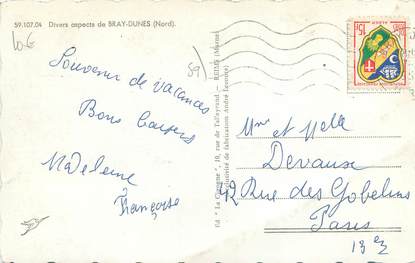 59.107.04 Divers aspects de BRAY-DUNES (Nord).
59)
Souvenir de vacances
Bons baisers
Madeleine
Françoise
Ed. "La Cigogne" - 10, rue de Talleyrand - REIMS (Marne)
de fabrication André
15F
Mme et Melle
Devaux
42 Rue des Gobelins
Paris
13e